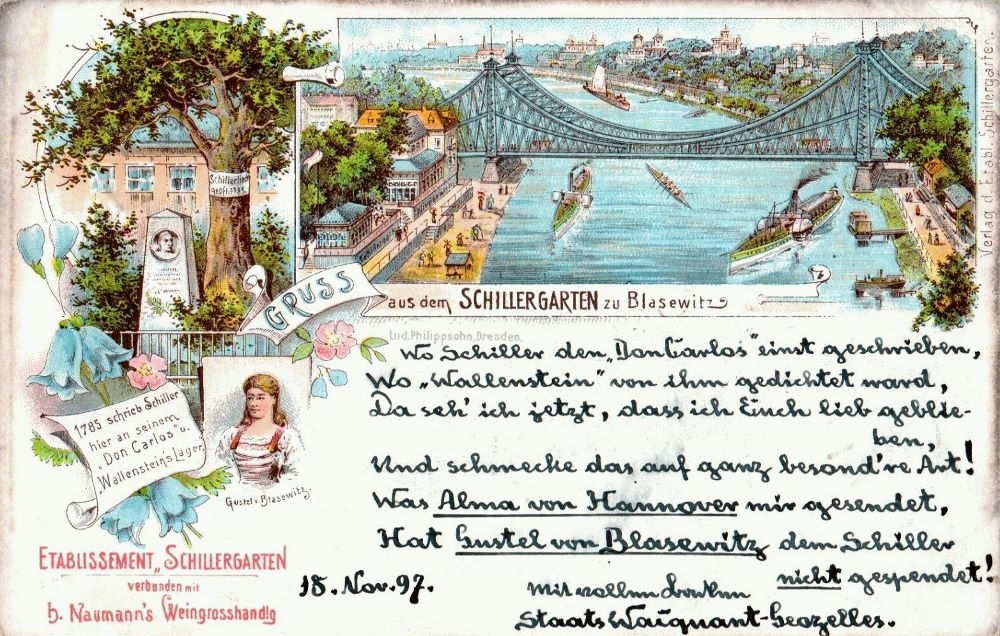 Schillerlinde
gepfl. 1785.
GRUSS
aus dem SCHILLERGARTEN zu Blasewitz
Verlag d. Etabl. Schillergarten.
Lud. Philippsohn, Dresden.
1785 schrieb Schiller
hier an seinem
"Don Carlos" u.
"Wallenstein's Lager"
Gustel v. Blasewitz.
ETABLISSEMENT „SCHILLERGARTEN
verbunden mit
H. Naumann's Weingrosshandlg
Wo Schiller den „Don Carlos" einst geschrieben,
Wo „Wallenstein" von ihm gedichtet ward,
Da seh' ich jetzt, dass ich Euch lieb geblie-
ben,
Und schmecke das auf ganz besond're Art!
Was Alma von Hannover mir gesendet,
Hat Gustel von Blasewitz dem Schiller
nicht gespendet!
18. Nov. 97.
Mit vollem
Staats